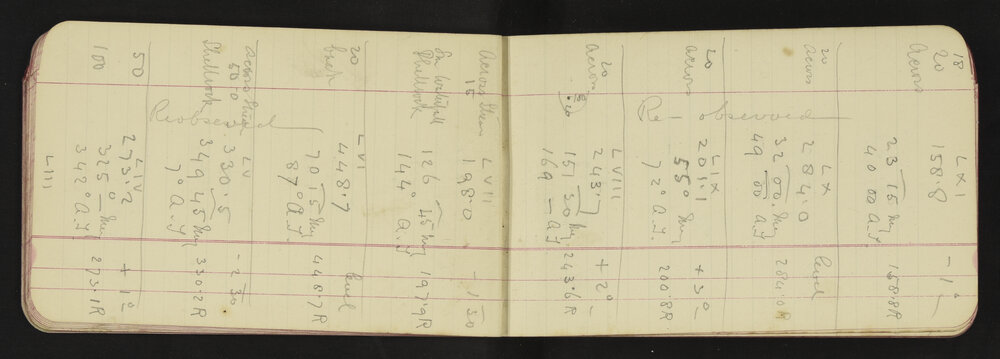 18 LXI
20 158.8 - 1°
Across
23 15 Mg 158.8R
40 00 A.Y.
20 LX
Across 284.0 level
32 00 Mg 284.0R
49 00 A.Y.
Re-observed
20 LIX
across 201.1 + 3°
55° Mg 200.8R
72° A.Y.
20 LVIII
Across 243.7 + 2°
151 30 Mg 243.6R
169 - A.Y.
Across LVII
15 198.0 - 1 30
126 45 Mg 197.9R
144° A.Y.
LVI
20 448.7 level
70 15 Mg 448.7R
87° A.Y.
Reobserved
across LV
50.0 330.5 - 2 30
349 45 Mg 330.2R
7° A.Y.
LIV
50 273.2 + 1°
325 0 Mg 273.1R
100 342° A.Y.
LIII